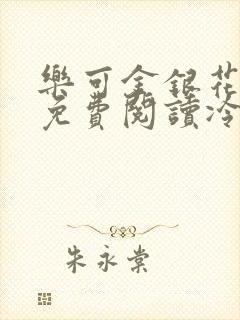 樂可金銀花
免費閱讀冷
朱永棠